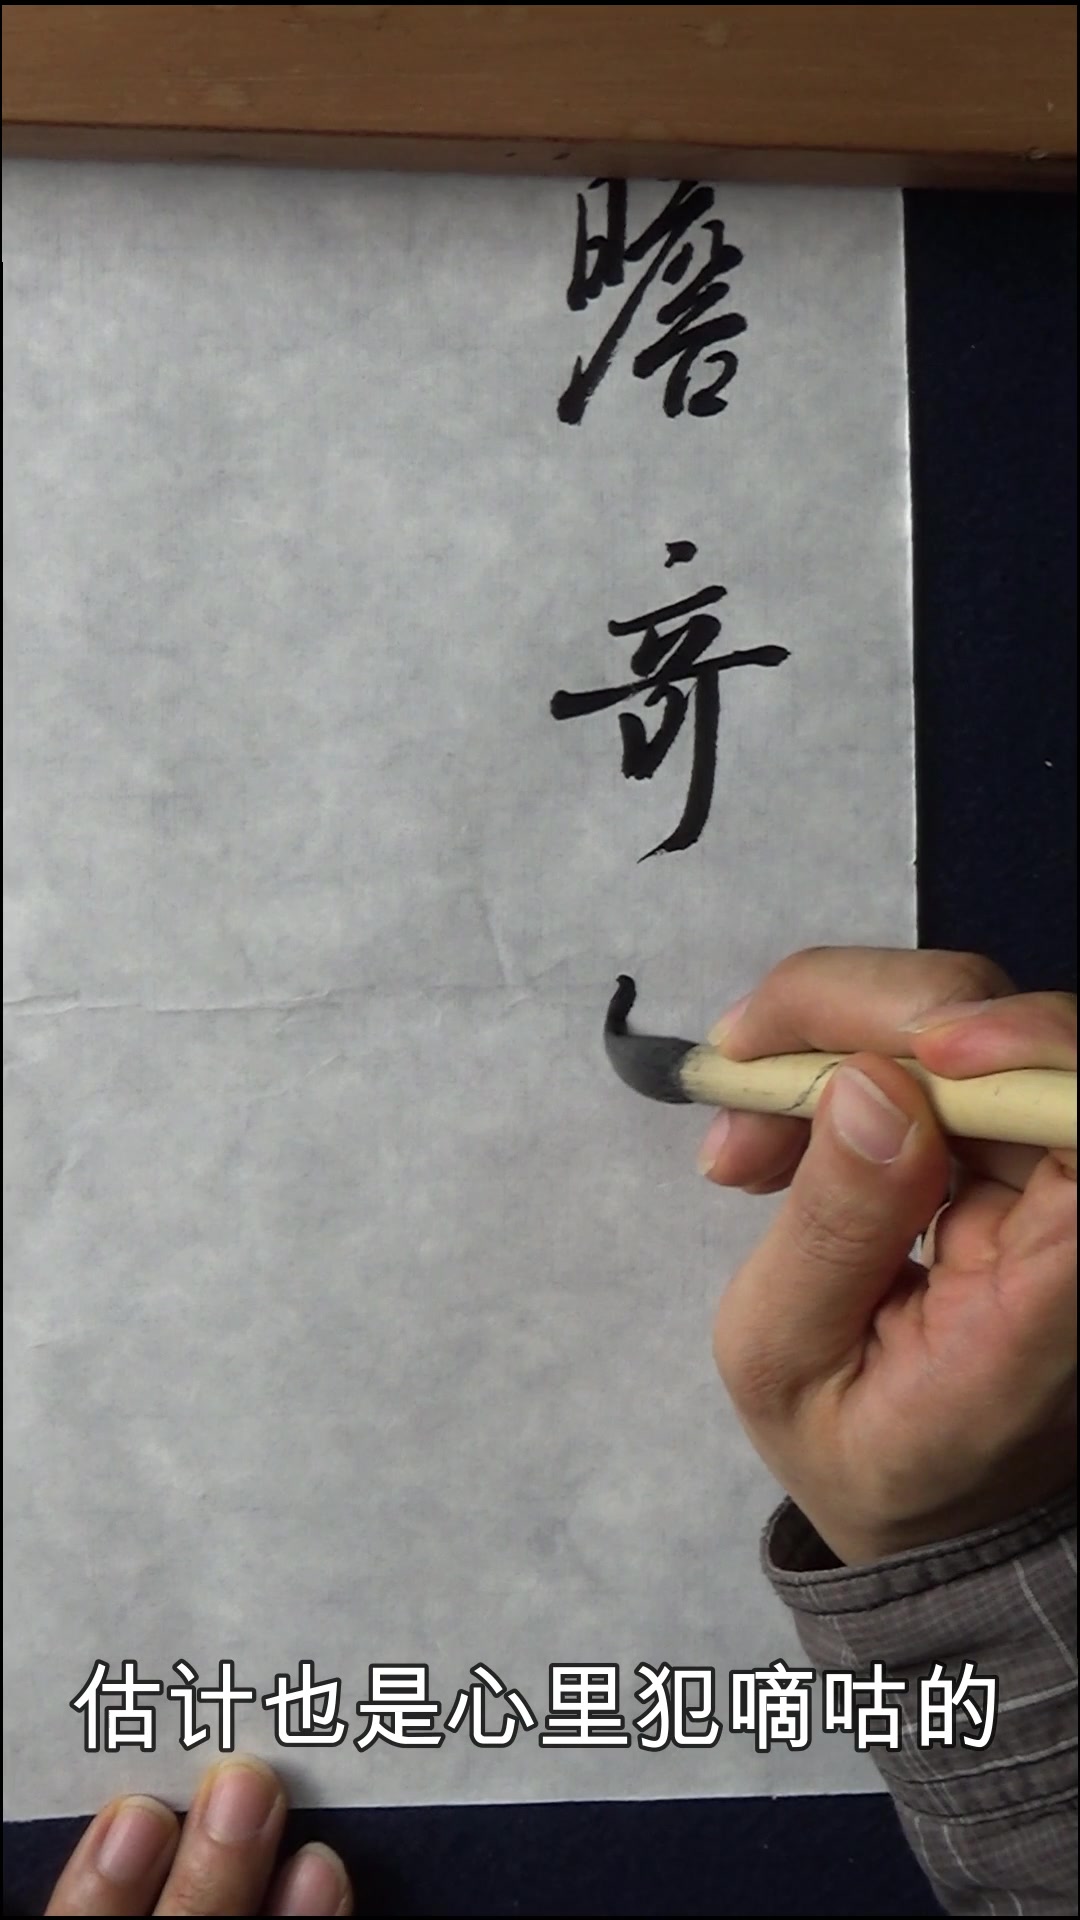 瞻
奇
估计也是心里犯嘀咕的